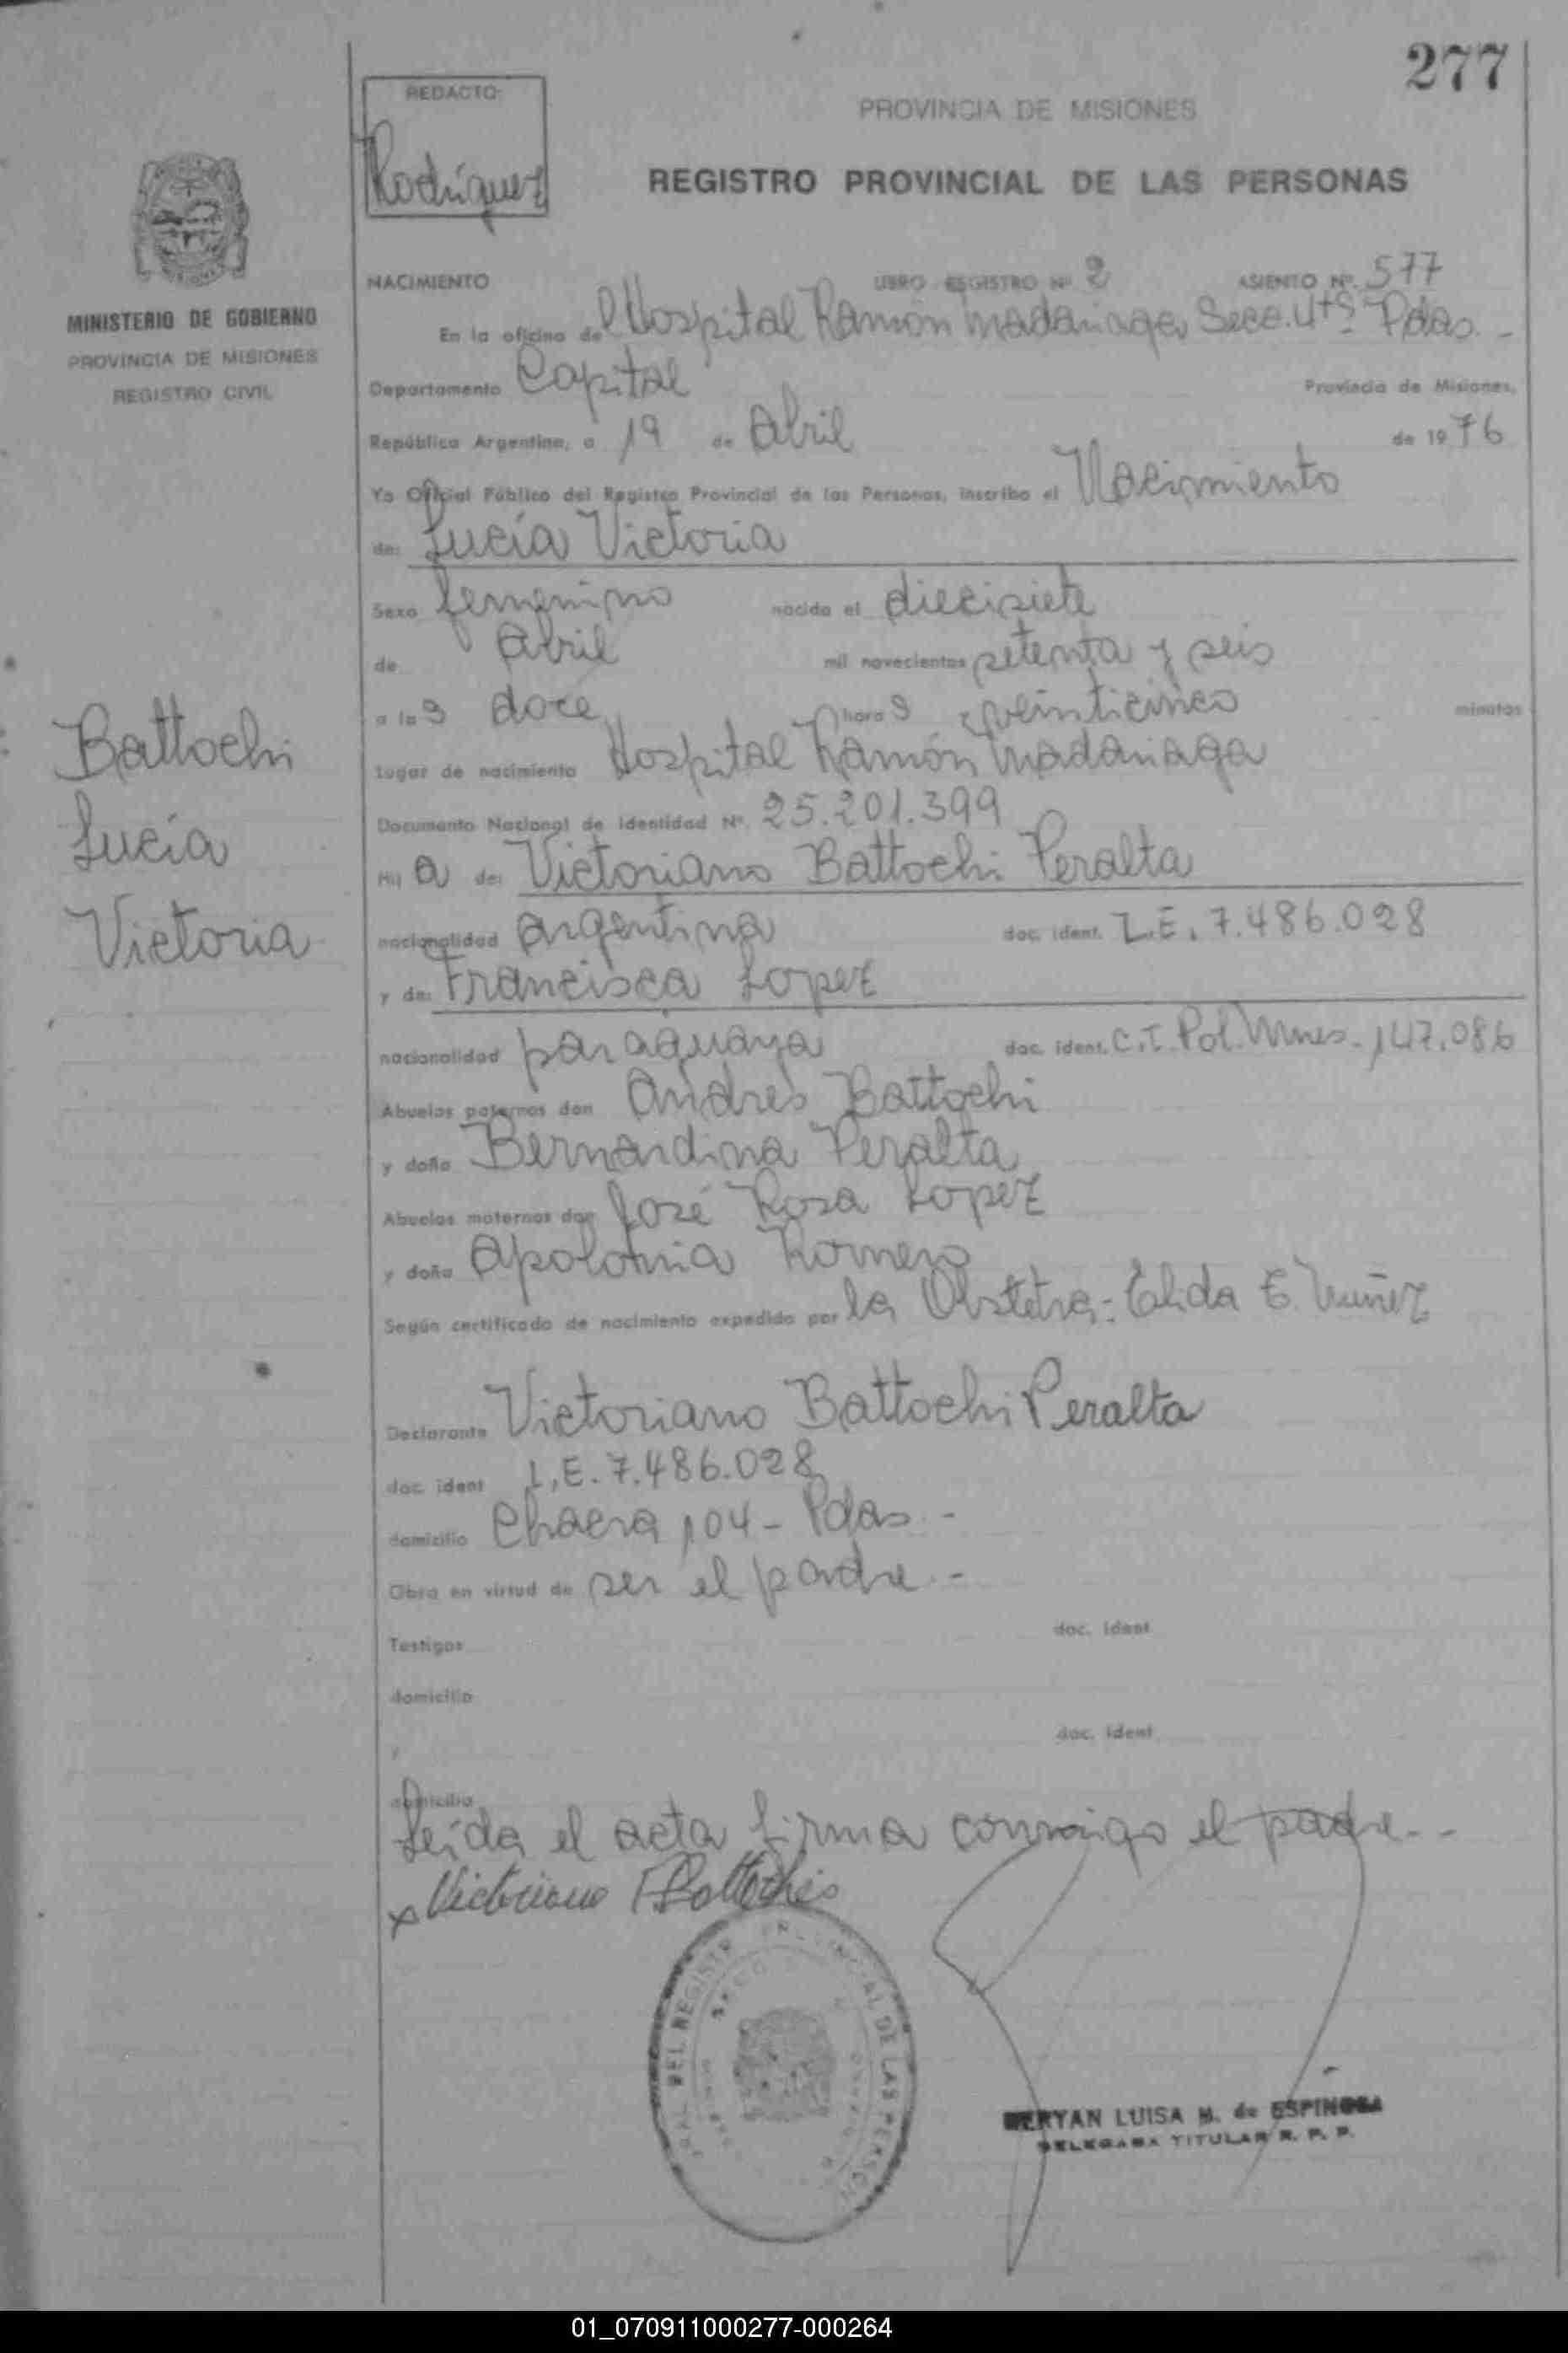 277
REDACTO
Rodríguez
PROVINCIA DE MISIONES
REGISTRO PROVINCIAL DE LAS PERSONAS
MINISTERIO DE GOBIERNO
PROVINCIA DE MISIONES
REGISTRO CIVIL
NACIMIENTO LIBRO REGISTRO Nº 2 ASIENTO Nº. 577
En la oficina del Hospital Ramón Madariaga Secc. 4ta Pdas. -
Departamento Capital Provincia de Misiones,
República Argentina, a 19 de Abril de 1976
Yo Oficial Público del Registro Provincial de las Personas, inscribo el Nacimiento
de: Lucía Victoria
Sexo femenino nacido el diecisiete
de Abril mil novecientos setenta y seis
a las doce horas veinticinco minutos
Lugar de nacimiento Hospital Ramón Madariaga
Documento Nacional de Identidad Nº. 25.201.399
Hija de: Victoriano Battochi Peralta
nacionalidad argentina doc. ident. L.E. 7.486.028
y de: Francisca Lopez
nacionalidad paraguaya doc. ident. C.I. Pol. Mnes. 147.086
Abuelos paternos don Andres Battochi
y doña Bernardina Peralta
Abuelos maternos don José Rosa Lopez
y doña Apolonia Romero
Según certificado de nacimiento expedido por la Obstetra: Elida E. Nuñez
Declarante Victoriano Battochi Peralta
doc. ident L.E. 7.486.028
domicilio Chacra 104 - Pdas. -
Obra en virtud de ser el padre. -
Testigos doc. ident
domicilio
y doc. ident
domicilio
Leída el acta firma conmigo el padre. -
x Victoriano Battochi
Battochi
Lucía
Victoria
DEL REGISTRO PROVINCIAL DE LAS PERSONAS
MERYAN LUISA M. de ESPINOSA
DELEGADA TITULAR R. P. P.
01_070911000277-000264